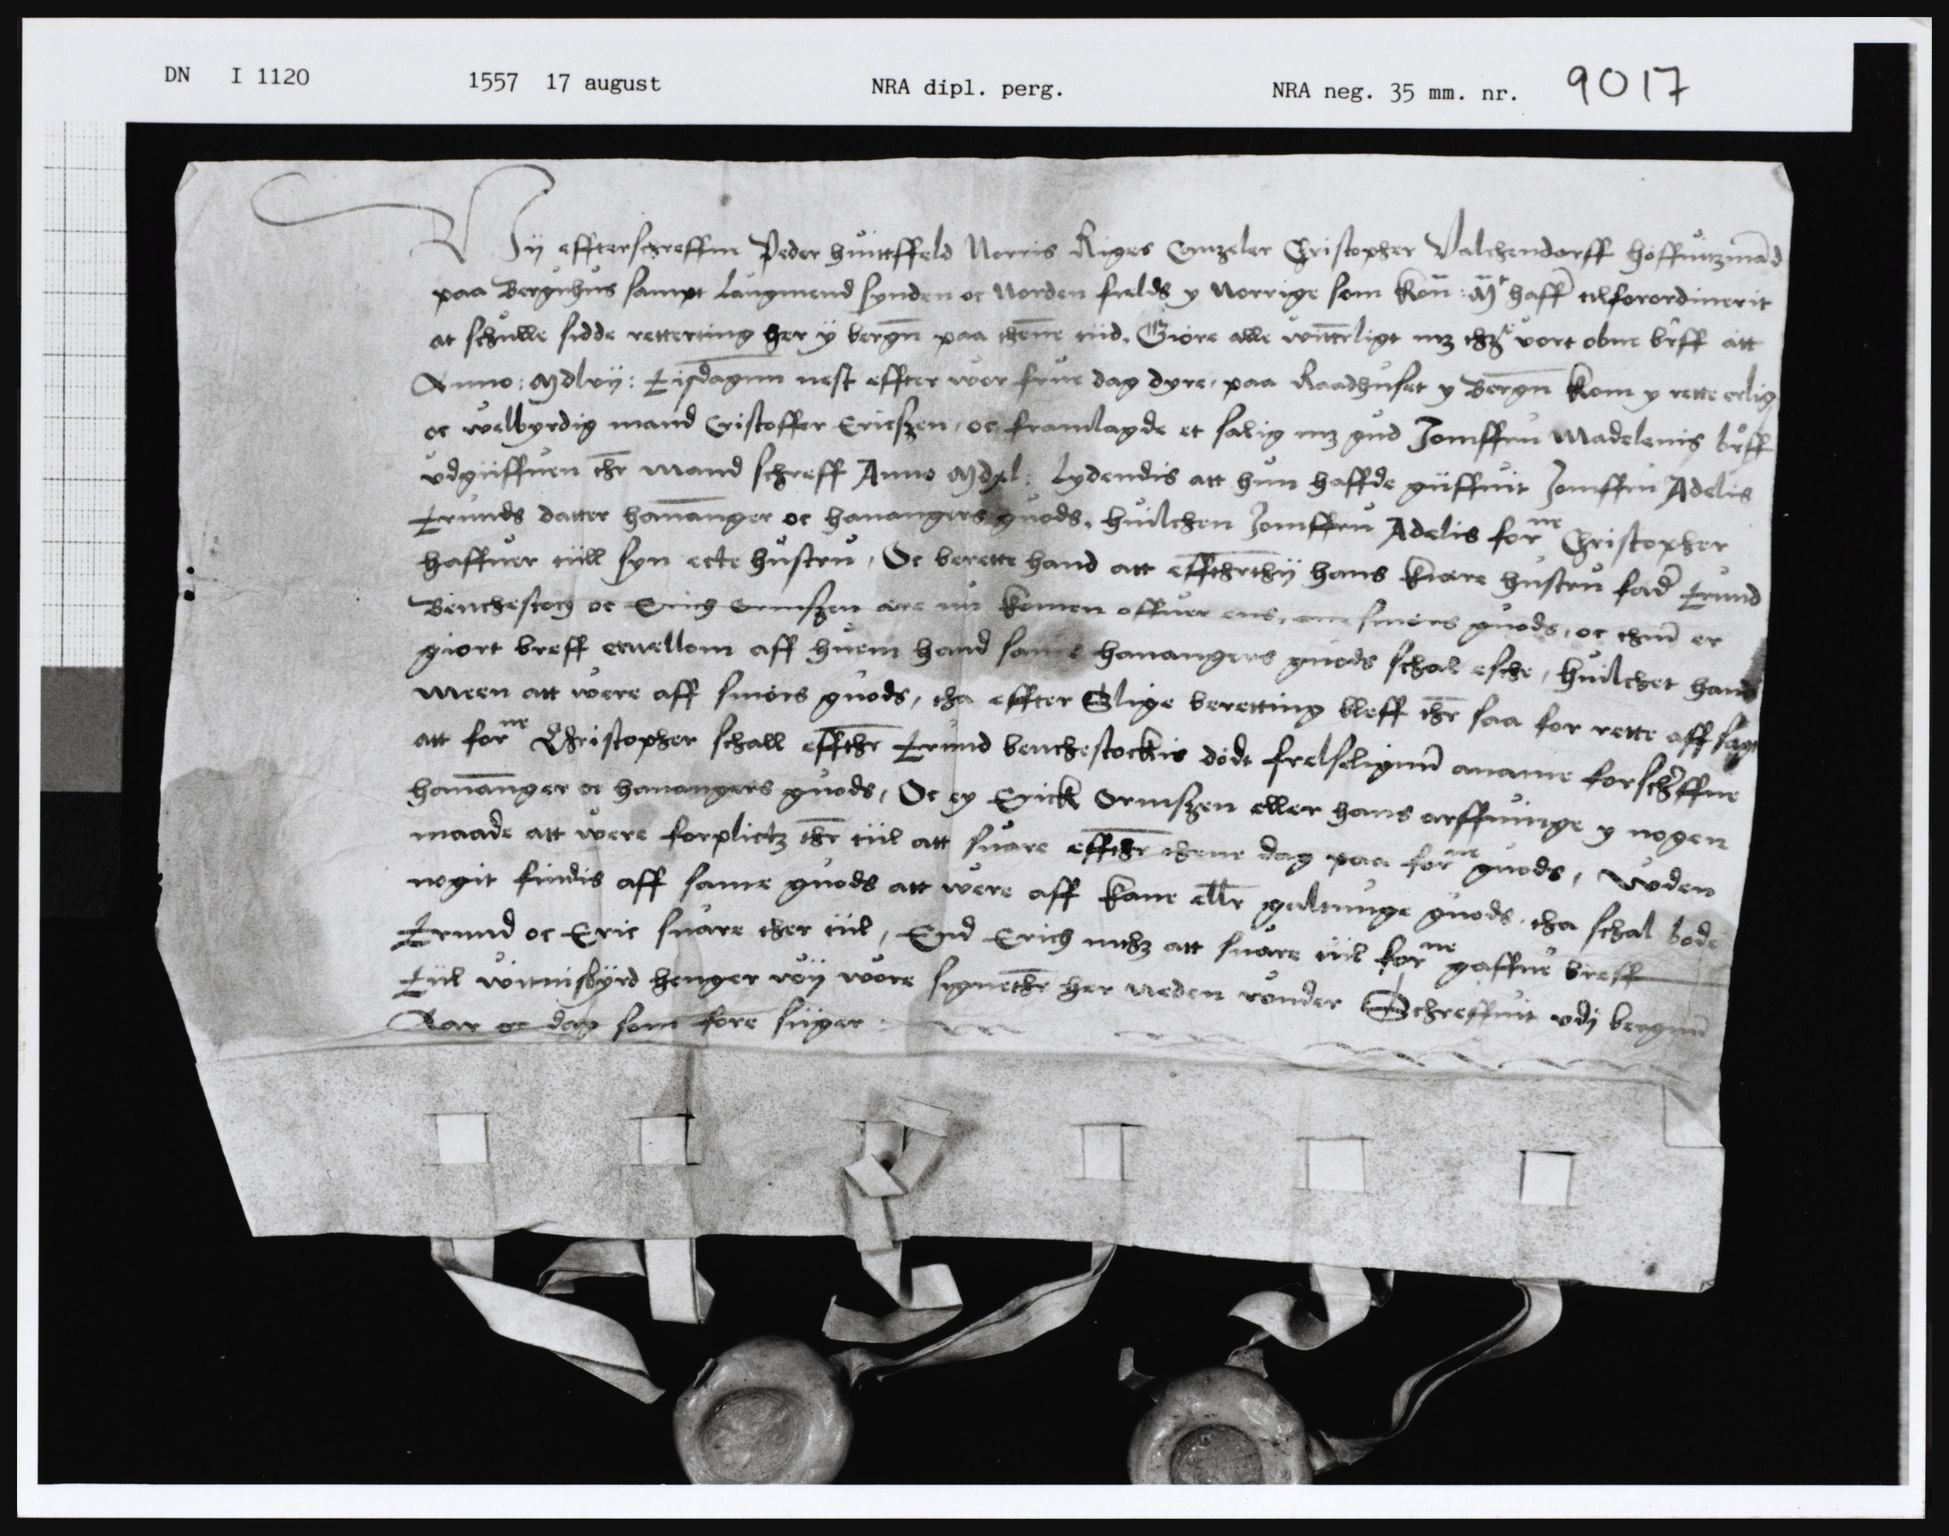 DN I 1120 1557 17 august NRA dipl. perg. NRA neg. 35 mm. nr. 9017
Wij effterschreffne Peder huittffeld Norris Riges Cantzeler Christopher Valchendorff höffuitzmād
paa Bergūhus sampt Laugmend synden oc Norden fields y Norrige som Kōn: Mt haffr tilforordinerit
at schulle sidde retterting her ÿ bergn paa thenne tiid, Giöre alle witterligt mz thz vort obne breff att
Anno: Mdlvij: Tisdagnn nest effter wor frue dag dyre, paa Raadhuset y Bergn kom y rette erlig
oc welbyrdig mand Cristoffer Ericszen, oc framlagde et salig mz gud Jomffru Madelenis breff
vdgiiffuen thr mand schreff Anno Mdxl: Lydendis att hun haffde giiffuit Jomffru Adelis
Trunds datter hanānger oc hanangers guods, huilchen Jomffru Adelis forne Christopher
haffuer tiill syn ecte hustru, Oc berette hand att effthrthij hans kiere hustru fadr Trund
Benchestoch oc Erich ormszen are nu komen offuer ens, om smörs guods, oc thm er
giort breff emellom aff huem hand same hanangers guods schal esche, huilchet hand
meen att were aff smörs guods, tha effter Slige beretting bleff thr saa for rette aff sagt
att forne Christopher schall effthr Trund benchestockis dödt frelseligmm aname forschreffne
hanānger oc hanangers guods, Oc ey Erick Ormszen eller hans arffuinge y nogen
maade att were forplictz thr tiil att suare effthr thene dag paa forne guods, vden
nogit findis aff same guods att were aff kane ellr galtunge guods, tha schal bode
Trund oc Eric suare ther tiil, End Erich mthz att suare tiil forne gaffue breff
Tiil witnisbyrd henger wij wore signethr her neden vnder Schreffuit vdj bergnn
Aar oc dag som fore siiger